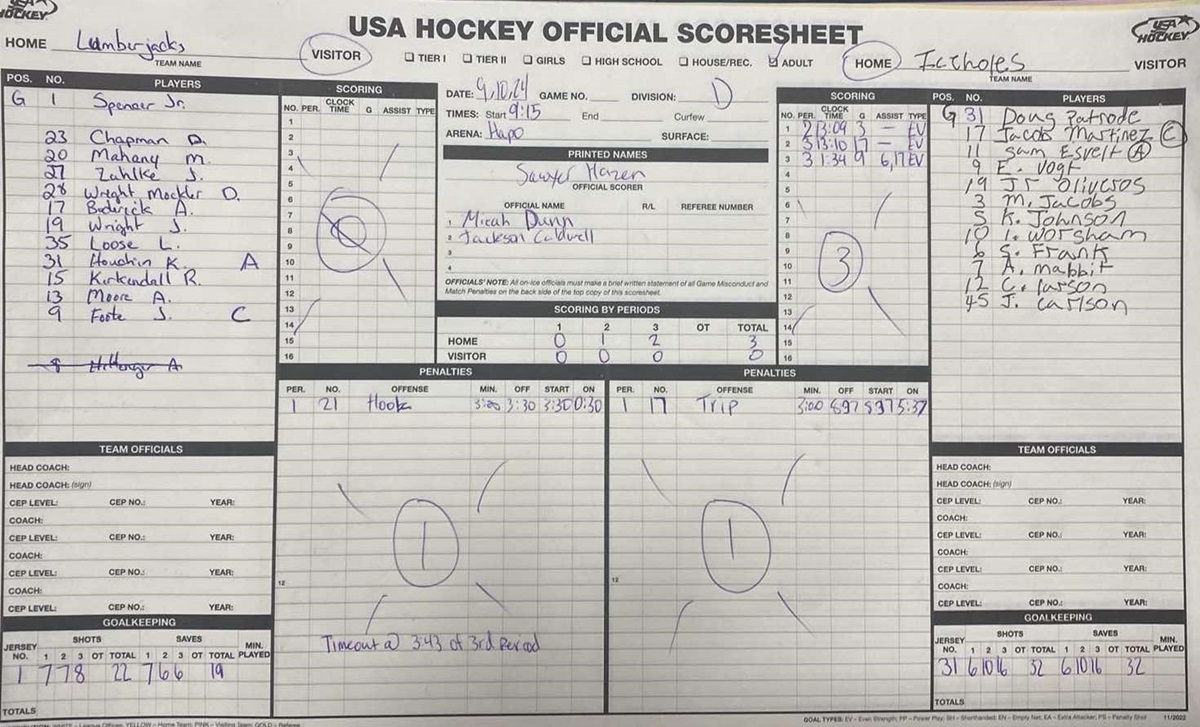 USA HOCKEY
USA HOCKEY OFFICIAL SCORESHEET
USA HOCKEY
HOME Lumberjacks VISITOR
TEAM NAME
☐ TIER I ☐ TIER II ☐ GIRLS ☐ HIGH SCHOOL ☐ HOUSE/REC. ☑ ADULT
HOME Ictholes VISITOR
TEAM NAME
POS. NO. PLAYERS
G 1 Spencer Jr.
23 Chapman D.
20 Mahany M.
27 Zahlke J.
28 Wright Mockler D.
17 Broderick A.
19 Wright J.
35 Loose L.
31 Houchin K. A
15 Kirkendall R.
13 Moore A.
9 Foote J. C
SCORING
NO. PER. CLOCK TIME G ASSIST TYPE
1
2
3
4
5
6
7
8
9
10
11
12
13
14
15
16
0
DATE: 9,10,24 GAME NO. DIVISION: D
TIMES: Start 9:15 End Curfew
ARENA: Hapo SURFACE:
PRINTED NAMES
Sawyer Hazen
OFFICIAL SCORER
OFFICIAL NAME R/L REFEREE NUMBER
1 Micah Dunn
2 Jackson Caldwell
3
4
OFFICIALS' NOTE: All on-ice officials must make a brief written statement of all Game Misconduct and
Match Penalties on the back side of the top copy of this scoresheet.
SCORING BY PERIODS
1 2 3 OT TOTAL
HOME 0 1 2 3
VISITOR 0 0 0 0
SCORING
NO. PER. CLOCK TIME G ASSIST TYPE
1 2 13:09 3 — EV
2 3 13:10 17 — EV
3 3 1:34 9 6,17 EV
4
5
6
7
8
9
10
11
12
13
14
15
16
3
POS. NO. PLAYERS
G 31 Doug Patrode
17 Jacob Martinez C
11 Sam Esvelt A
9 E. Vogt
19 Jr Oliveros
3 M. Jacobs
5 K. Johnson
10 I. Worsham
6 S. Frank
7 A. Mabbit
12 C. Larson
45 J. Carlson
PENALTIES
PER. NO. OFFENSE MIN. OFF START ON
1 21 Hook 3:00 3:30 3:30 0:30
1
12
Timeout @ 3:43 of 3rd Period
PENALTIES
PER. NO. OFFENSE MIN. OFF START ON
1 17 Trip 3:00 5:37
1
12
TEAM OFFICIALS
HEAD COACH:
HEAD COACH: (sign)
CEP LEVEL: CEP NO.: YEAR:
COACH:
CEP LEVEL: CEP NO.: YEAR:
COACH:
CEP LEVEL: CEP NO.: YEAR:
COACH:
CEP LEVEL: CEP NO.: YEAR:
GOALKEEPING
JERSEY NO. SHOTS 1 2 3 OT TOTAL SAVES 1 2 3 OT TOTAL MIN. PLAYED
1 7 7 8 22 7 6 6 19
TOTALS
TEAM OFFICIALS
HEAD COACH:
HEAD COACH: (sign)
CEP LEVEL: CEP NO.: YEAR:
COACH:
CEP LEVEL: CEP NO.: YEAR:
COACH:
CEP LEVEL: CEP NO.: YEAR:
COACH:
CEP LEVEL: CEP NO.: YEAR:
GOALKEEPING
JERSEY NO. SHOTS 1 2 3 OT TOTAL SAVES 1 2 3 OT TOTAL MIN. PLAYED
31 6 10 16 32 6 10 16 32
TOTALS
GOAL TYPES: EV – Even Strength; PP – Power Play; SH – Shorthanded; EN – Empty Net; EA – Extra Attacker; PS – Penalty Shot